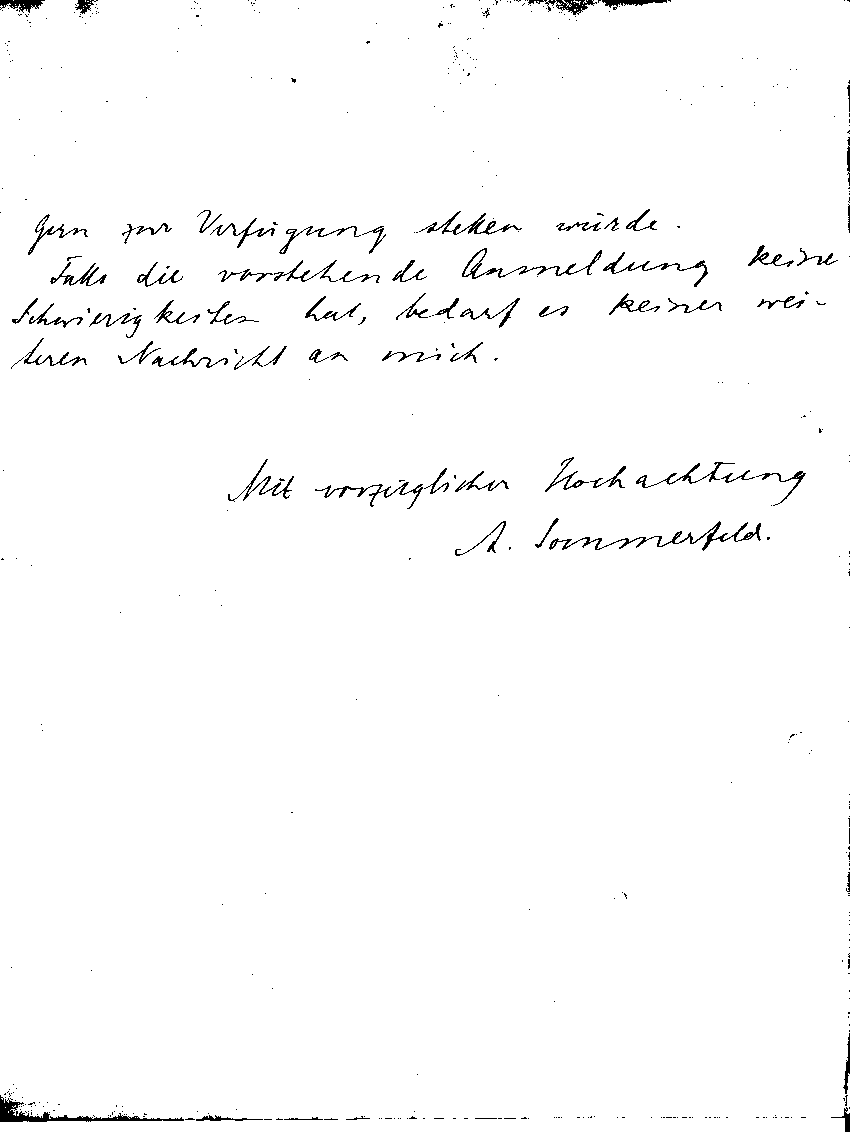 gern zur Verfügung stellen würde.
Falls die vorstehende Anmeldung keine
Schwierigkeiten hat, bedarf es keiner wei-
teren Nachricht an mich.
Mit vorzüglicher Hochachtung
A. Sommerfeld.